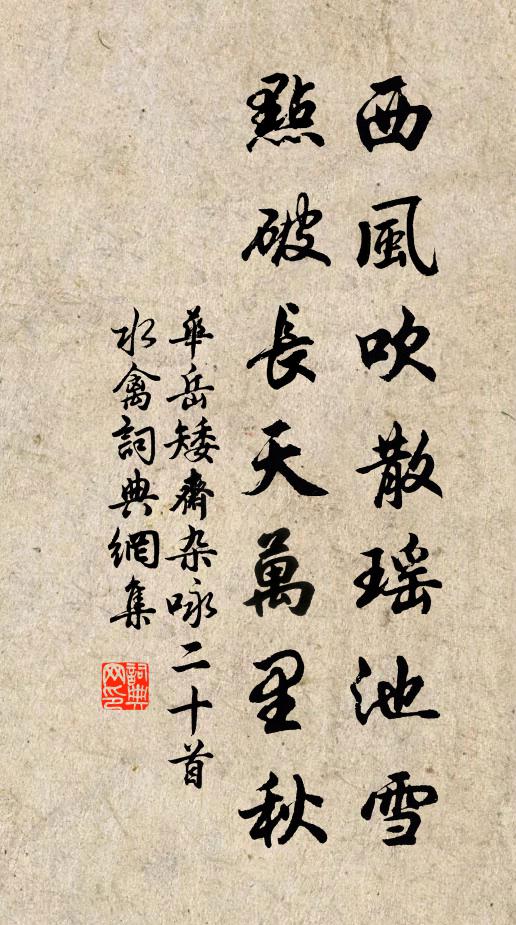 西風吹散瑶池雪
點破長天萬里秋
華岳矮齋杂咏二十首
水禽詞典網集
詞典网印